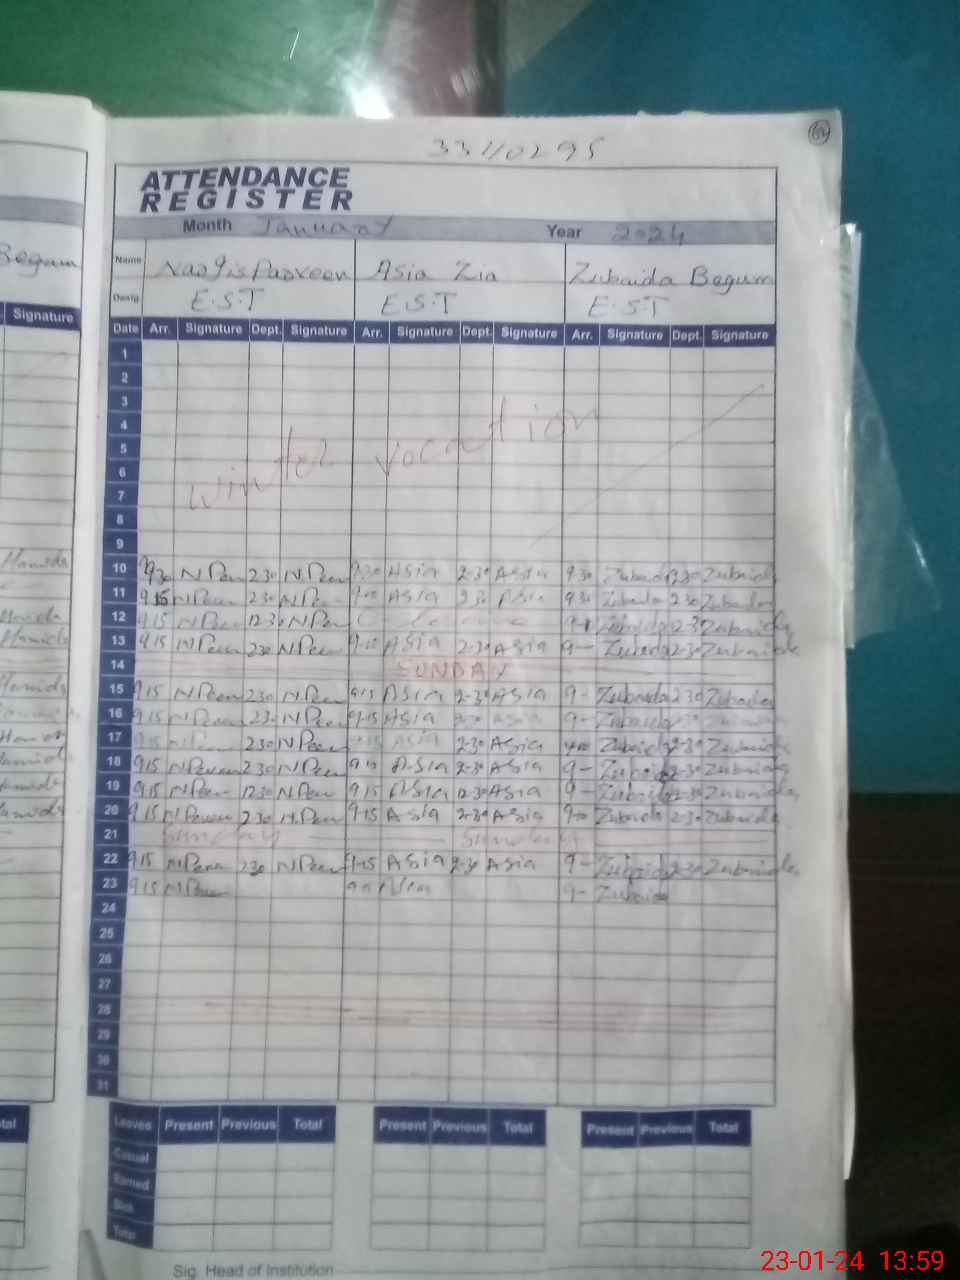 33110295
ATTENDANCE
REGISTER
Month January Year 2024
Begum
Name Nargis Parveen Asia Zia Zubaida Begum
Desig E.S.T E.S.T E.S.T
Signature
Date Arr. Signature Dept. Signature Arr. Signature Dept. Signature Arr. Signature Dept. Signature
1
2
3
4
5
6
7
8
9
winter vacation
Hamida 10 9,30 N Peen 2.30 N Peen 9.30 Asia 2-30 Asia 9.30 Zubaida 2.30 Zubaida
11 9.15 N Peen 2.30 N Peen Asia 2.30 Asia 9.30 Zubaida 2.30 Zubaida
Hamida 12 9.15 N Peen 12.30 N Pen Zubaida 12-30 Zubaida
Hamida 13 9.15 N Peen 2.30 N Peen Asia 2-30 Asia 9- Zubaida 2-30 Zubaida
14 SUNDAY
Hamida 15 9.15 N Peen 2.30 N Peen 9.15 Asia 2-30 Asia 9- Zubaida 2.30 Zubaida
16 9.15 N Peen 2.30 N Peen 9-15 Asia Asia 9- Zubaida Zubaida
17 2.30 N Peen Asia 2-30 Asia Zubaida 2-30 Zubaida
Hamida 18 9.15 2.30 N Peen Asia 2-30 Asia 9- Zubaida 2-30 Zubaida
Hamida 19 9.15 N Peen 12.30 N Peen 9.15 Asia 12-30 Asia 9- Zubaida 12-30 Zubaida
Hamida 20 9.15 2.30 N.Peen 9-15 Asia 2-30 Asia Zubaida 2-30 Zubaida
21 Sunday Sunday
22 9.15 N Peen 2.30 N Peen 9-15 Asia 2-30 Asia 9- Zubaida 2-30 Zubaida
23 9.15 N Peen Asia 9- Zubaida
24
25
26
27
28
29
30
31
Total Leaves Present Previous Total Present Previous Total Present Previous Total
Casual
Earned
Sick
Total
Sig. Head of Institution
23-01-24 13:59